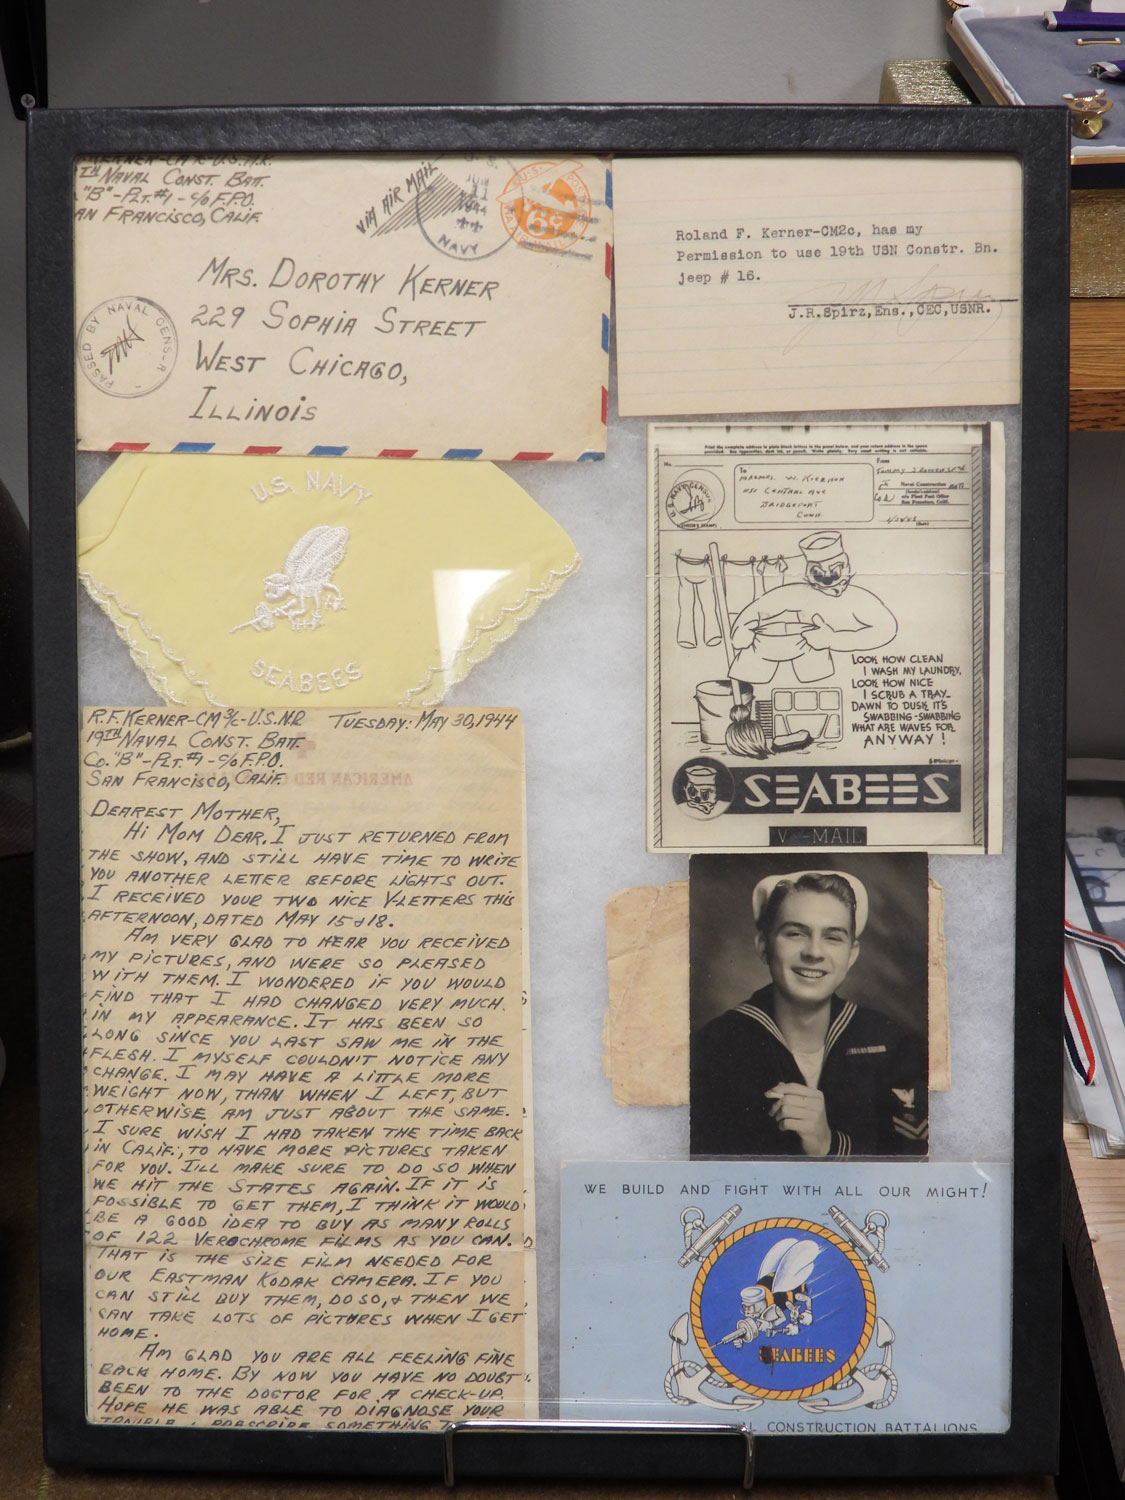 KERNER-CM 2/c-U.S.N.R.
TH NAVAL CONST. BATT.
"B"-PLT.#1-c/o F.P.O.
AN FRANCISCO, CALIF.
VIA AIR MAIL
U.S.
JUN
11
1944
NAVY
6¢
MRS. DOROTHY KERNER
229 SOPHIA STREET
WEST CHICAGO,
ILLINOIS
PASSED BY NAVAL CENSOR
Roland F. Kerner-CM2c, has my
Permission to use 19th USN Constr. Bn.
jeep # 16.
J.R.Spirz,Ens.,CEC,USNR.
U.S. NAVY
SEABEES
Print the complete address in plain block letters in the panel below, and your return address in the space
provided. Use typewriter, dark ink, or pencil. Write plainly. Very small writing is not suitable.
No.
To
From
CENTRAL AVE
BRIDGEPORT
CONN.
Naval Construction Batt.
(Sender's address)
c/o Fleet Post Office
San Francisco, Calif.
(Date)
(CENSOR'S STAMP)
LOOK HOW CLEAN
I WASH MY LAUNDRY,
LOOK HOW NICE
I SCRUB A TRAY_
DAWN TO DUSK IT'S
SWABBING-SWABBING
WHAT ARE WAVES FOR
ANYWAY!
SEABEES
V-MAIL
R.F. KERNER-CM 2/c-U.S.N.R TUESDAY: MAY 30, 1944
19TH NAVAL CONST. BATT.
CO. "B"-PLT.#1-c/o F.P.O.
SAN FRANCISCO, CALIF.
AMERICAN RED
DEAREST MOTHER,
HI MOM DEAR. I JUST RETURNED FROM
THE SHOW, AND STILL HAVE TIME TO WRITE
YOU ANOTHER LETTER BEFORE LIGHTS OUT.
I RECEIVED YOUR TWO NICE V-LETTERS THIS
AFTERNOON, DATED MAY 15 & 18.
AM VERY GLAD TO HEAR YOU RECEIVED
MY PICTURES, AND WERE SO PLEASED
WITH THEM. I WONDERED IF YOU WOULD
FIND THAT I HAD CHANGED VERY MUCH
IN MY APPEARANCE. IT HAS BEEN SO
LONG SINCE YOU LAST SAW ME IN THE
FLESH. I MYSELF COULDN'T NOTICE ANY
CHANGE. I MAY HAVE A LITTLE MORE
WEIGHT NOW, THAN WHEN I LEFT, BUT
OTHERWISE AM JUST ABOUT THE SAME.
I SURE WISH I HAD TAKEN THE TIME BACK
IN CALIF., TO HAVE MORE PICTURES TAKEN
FOR YOU. I'LL MAKE SURE TO DO SO WHEN
WE HIT THE STATES AGAIN. IF IT IS
POSSIBLE TO GET THEM, I THINK IT WOULD
BE A GOOD IDEA TO BUY AS MANY ROLLS
OF 122 VEROCHROME FILMS AS YOU CAN.
THAT IS THE SIZE FILM NEEDED FOR
OUR EASTMAN KODAK CAMERA. IF YOU
CAN STILL BUY THEM, DO SO, & THEN WE
CAN TAKE LOTS OF PICTURES WHEN I GET
HOME.
AM GLAD YOU ARE ALL FEELING FINE
BACK HOME. BY NOW YOU HAVE NO DOUBT
BEEN TO THE DOCTOR FOR A CHECK-UP.
HOPE HE WAS ABLE TO DIAGNOSE YOUR
TROUBLE & PRESCRIBE SOMETHING T
WE BUILD AND FIGHT WITH ALL OUR MIGHT!
SEABEES
AL CONSTRUCTION BATTALIONS